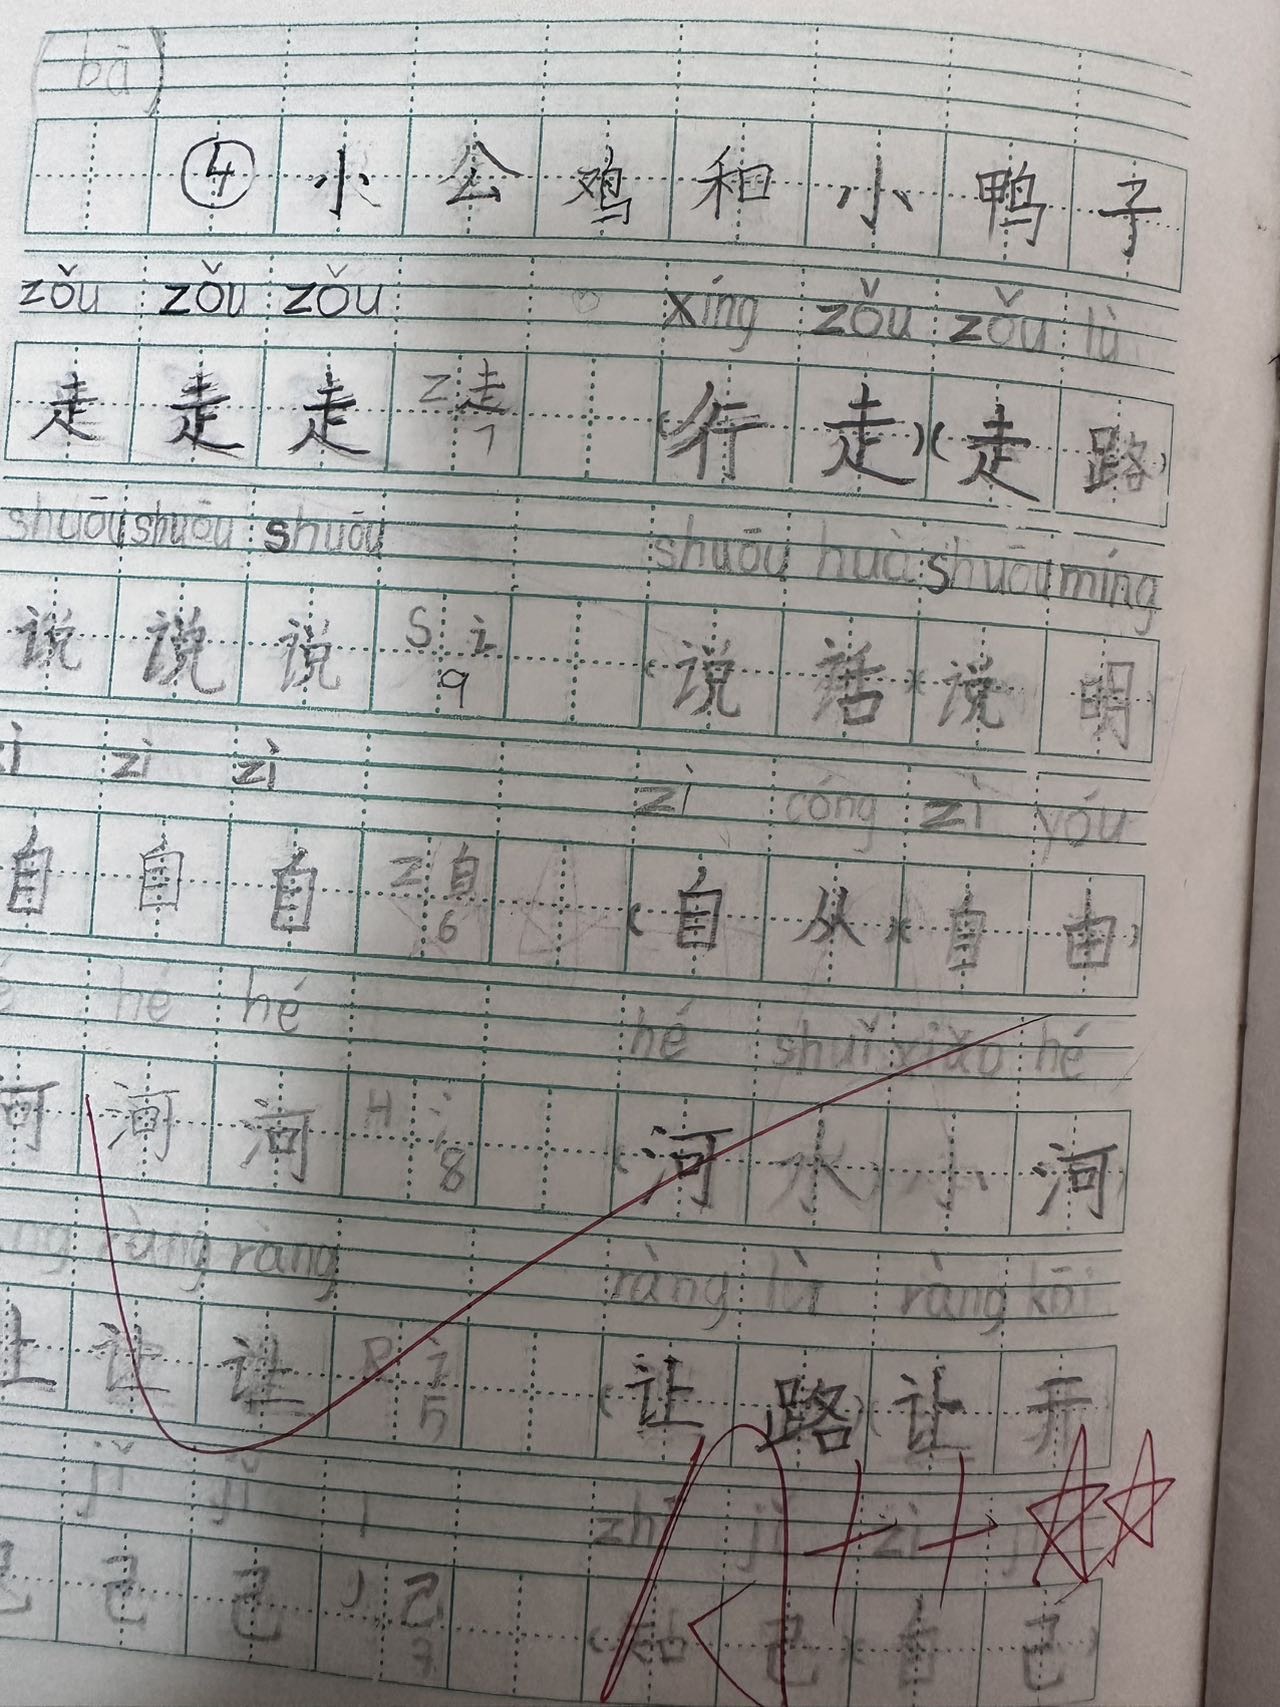 bā
④小公鸡和小鸭子
zǒu zǒu zǒu xíng zǒu zǒu lù
走 走 走 Z 走 7 (行走)(走路)
shuōu shuōu shuōu shuōu huà shuōu míng
说 说 说 S 讠 9 (说话)(说明)
zì zì zì cóng zì yóu
自 自 自 Z 自 6 (自从)(自由)
hé hé hé shuǐ xiǎo hé
河 河 河 H 氵 8 (河水)(小河)
ràng ràng ràng lù ràng kāi
让 让 让 R 讠 5 (让路)(让开)
jǐ jǐ jǐ zì
己 己 己 J 己 己)(自己)
A++☆☆